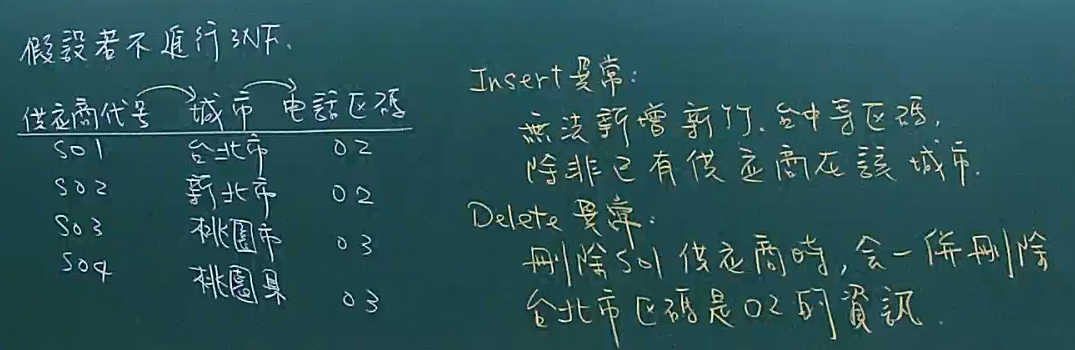 假設若不進行3NF.
供应商代号 城市 电話区碼
S01 台北市 02
S02 新北市 02
S03 桃園市 03
S04 桃園県 03
Insert 異常:
無法新增新竹、台中等区碼,
除非已有供应商在該城市.
Delete 異常:
刪除S01供应商時,会一併刪除
台北市区碼是02的資訊.